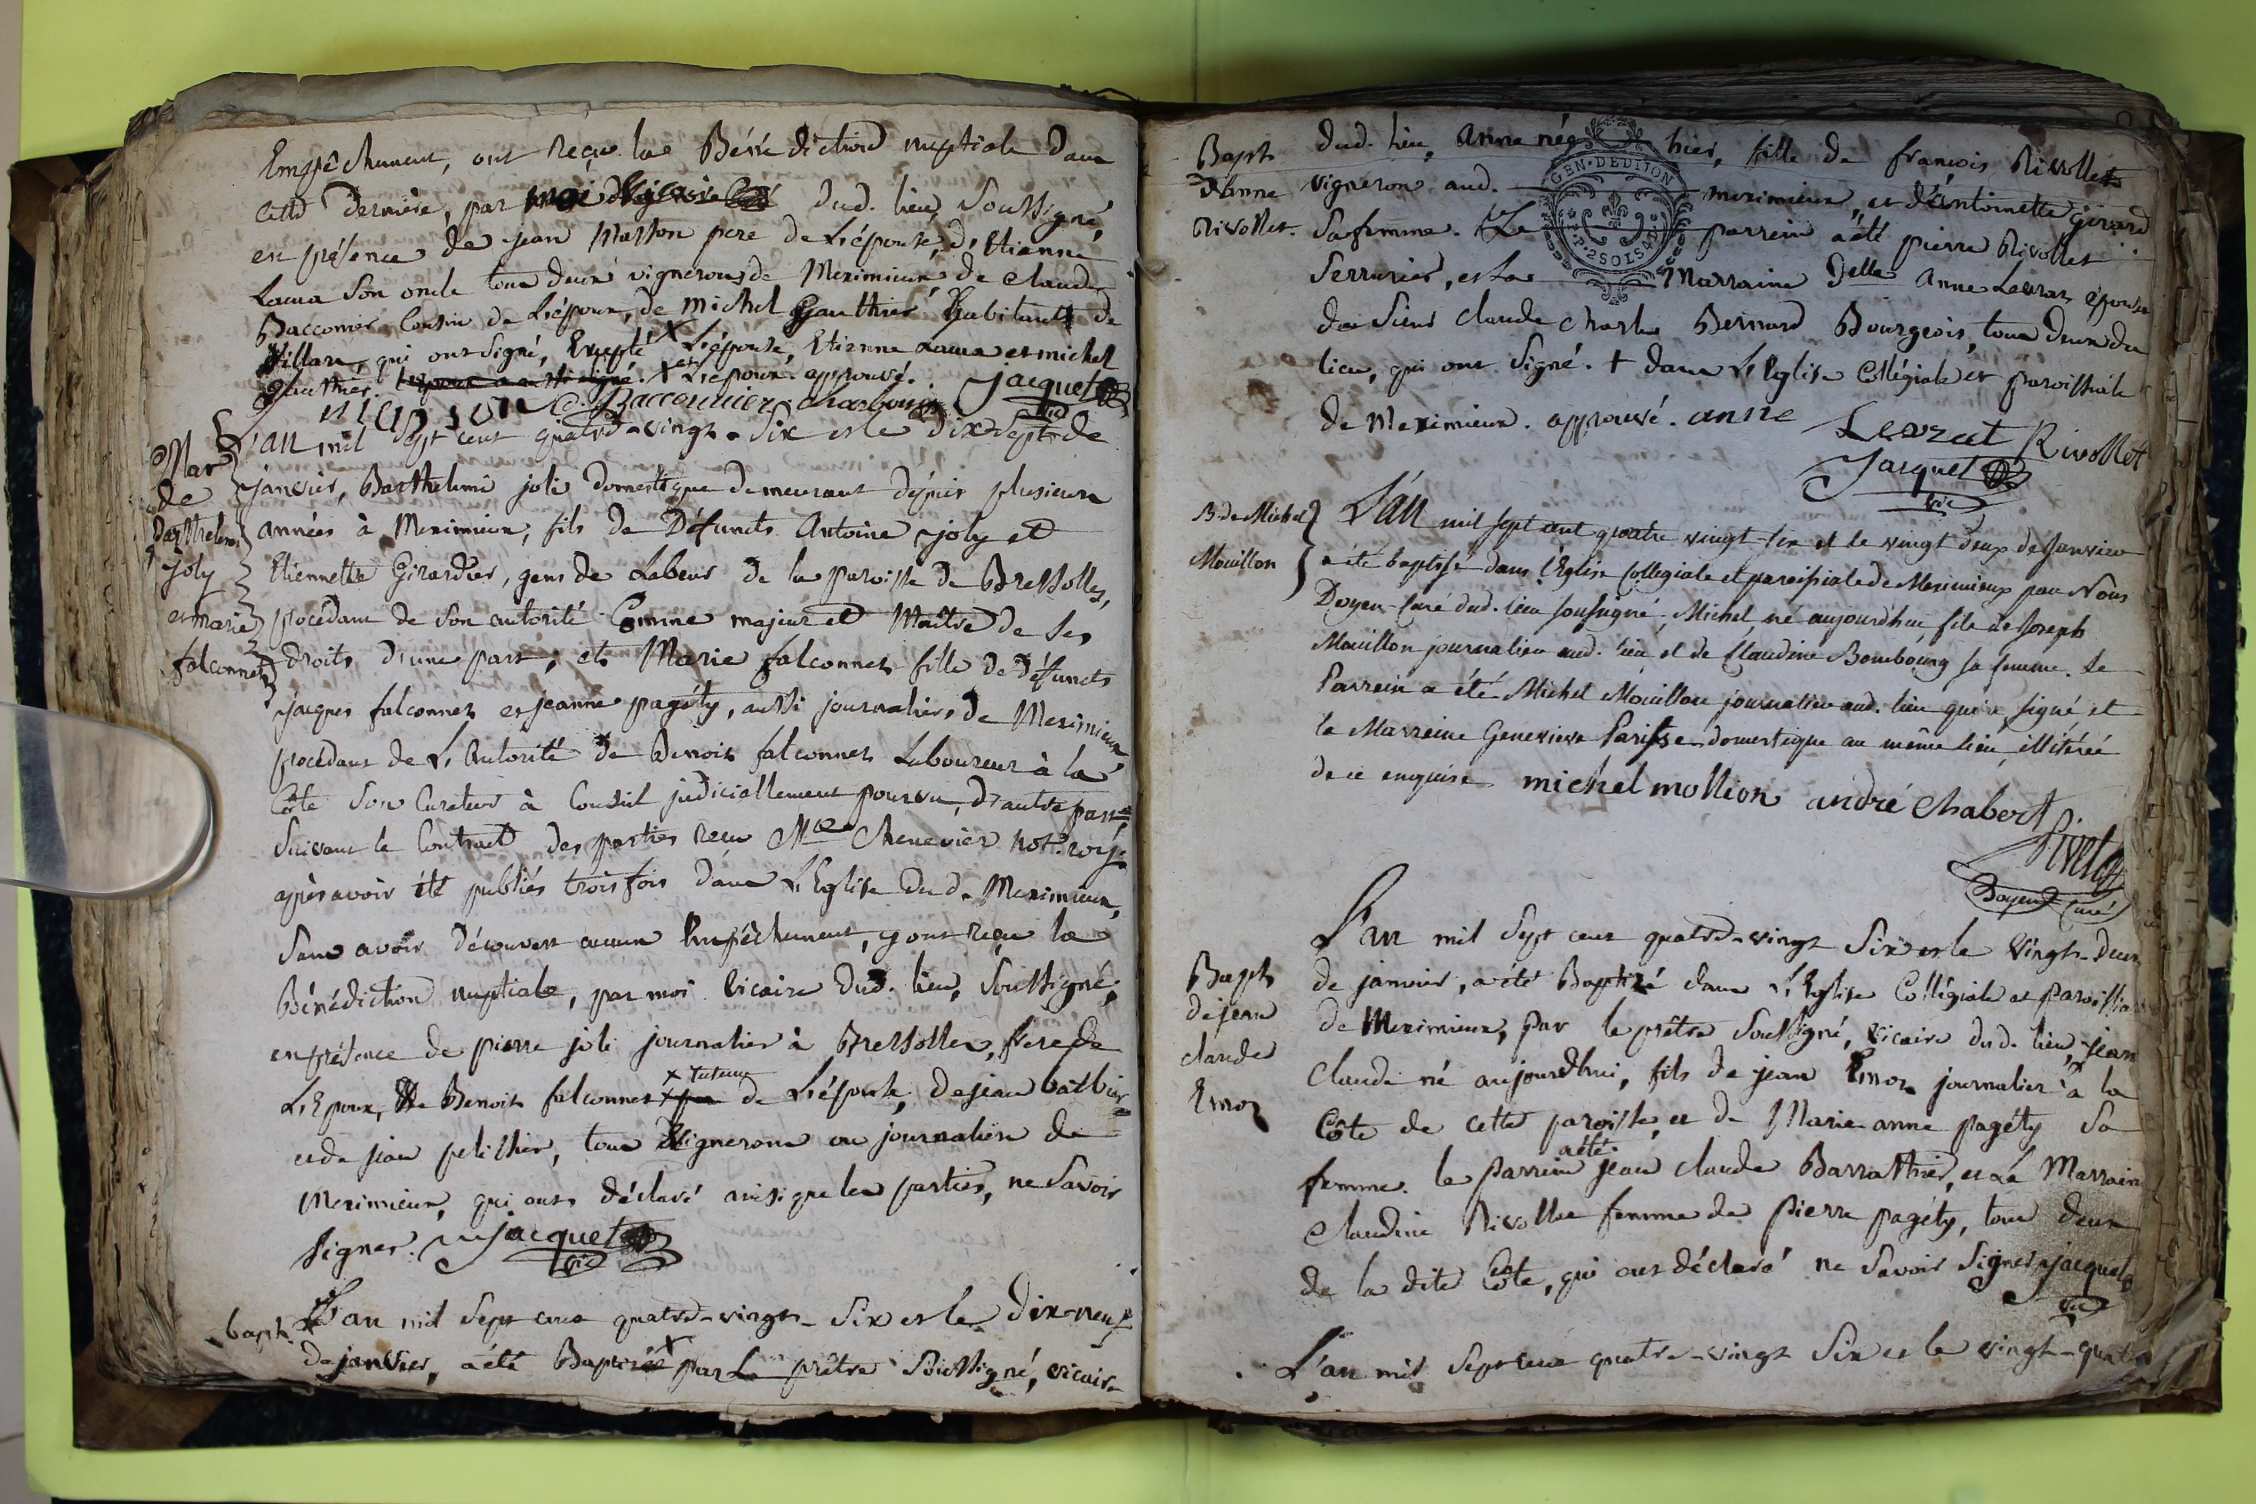 Empêchement, ont reçu la Bénédiction nuptiale dans
cette derniere, par moi vicaire dud. lieu Soussigné,
en présence de jean Masson pere de L'épouse, d'Etienne
Lama Son oncle tous deux vignerons de Meximieux, de claude
Bacconier Cousin de L'époux, de michel Gauthier habitants de
Villars, qui ont signé, Excepté × L'épouse, Etienne Lama et michel
gauthier. × et L'époux approuvé. jacquet
vic
masson C. Bacconnier charbony
Mar
de
Barthelemi
joly
et marie
falconnet
L'an mil sept cent quatre-vingt-Six et le dix-Sept de
janvier, Barthelemi joli domestique demeurant dépuis plusieurs
années à Meximieux, fils de Défunts Antoine joly et
Etiennette Girardier, gens de Labeur de la paroisse de Bressolles,
procédant de Son autorité Comme majeur et Maitre de Ses
droits, d'une part; et Marie falconnet fille de défunts
jacques falconnet et jeanne pagéty, aussi journaliers de Meximieux,
procédant de L'Autorité de Benoit falconnet Laboureur à la
Côte Son Curateur à Conseil judiciellement pourvu, d'autre part,
Suivant le Contract des parties reçu Me Chenevier not. roy.
après avoir été publiés trois fois dans L'Eglise dud. Meximieux,
Sans avoir découvert aucun Empêchement, y ont reçu la
bénédiction nuptiale, par moi Vicaire dud. lieu, Soussigné,
en présence de pierre joli journalier à Bressolles, frere de
L'Epoux, de Benoit falconnet × tuteur de L'épouse, de jean barbier
et de jean pelissier, tous Vignerons ou journaliers de
Meximieux, qui ont déclaré ainsi que les parties, ne Savoir
Signer. jacquet
vic
baph.
L'an mil Sept cent quatre-vingt-Six et le dix-neuf
de janvier, a été Baptisée × par Le prêtre Soussigné, vicaire
Baph
d'Anne
Rivollet.
dud. lieu, Anne née hier, fille de francois Rivollet
vigneron aud. meximieux, et d'Antoinette girard
Sa femme. Le parrein a été pierre Rivollet
Serrurier, et La Marraine Delle Anne Levrat épouse
du Sieur claude charles Bernard Bourgeois, tous deux du
lieu, qui ont Signé. + dans L'Eglise Collégiale et paroissiale
de Meximieux. approuvé. anne Levrat Rivollet
jacquet
vic
GEN. DEDIJON
2 SOLS 4 D
B. de Michel
Mouillon
L'an mil sept cent quatre vingt-six et le vingt deux de Janvier
a été baptisé dans l'Eglise Collegiale et paroissiale de Meximieux par Nous
Doyen-Curé dud. lieu soussigné. Michel né aujourd'hui, fils de Joseph
Mouillon journalier aud. lieu et de Claudine Bombourg sa femme. Le
Parrein a été Michel Mouillon journalier aud. lieu qui a signé et
la Marreine Genevieve Parisse domestique au même lieu, illitérée
de ce enquise michel mollion andré chabert
Rivet
Doyen Curé
Baph
de jean
claude
Emoz
L'an mil Sept cent quatre-vingt Six et le Vingt-deux
de janvier, a été Baptizé dans L'Eglise Collégiale et paroissiale
de Meximieux, par le prêtre Soussigné, vicaire dud. lieu, jean
Claude né aujourdhui, fils de jean Emoz journalier à la
Côte de cette paroisse, et de Marie anne pagéty Sa
femme. le Parrein a été jean claude Barrathier, et La Marraine
Claudine Rivollet femme de Pierre pagéty, tous deux
de la dite Côte, qui ont déclaré ne Savoir Signer. jacquet
vic
L'an mil Sept cent quatre-vingt Six et le vingt-quatre